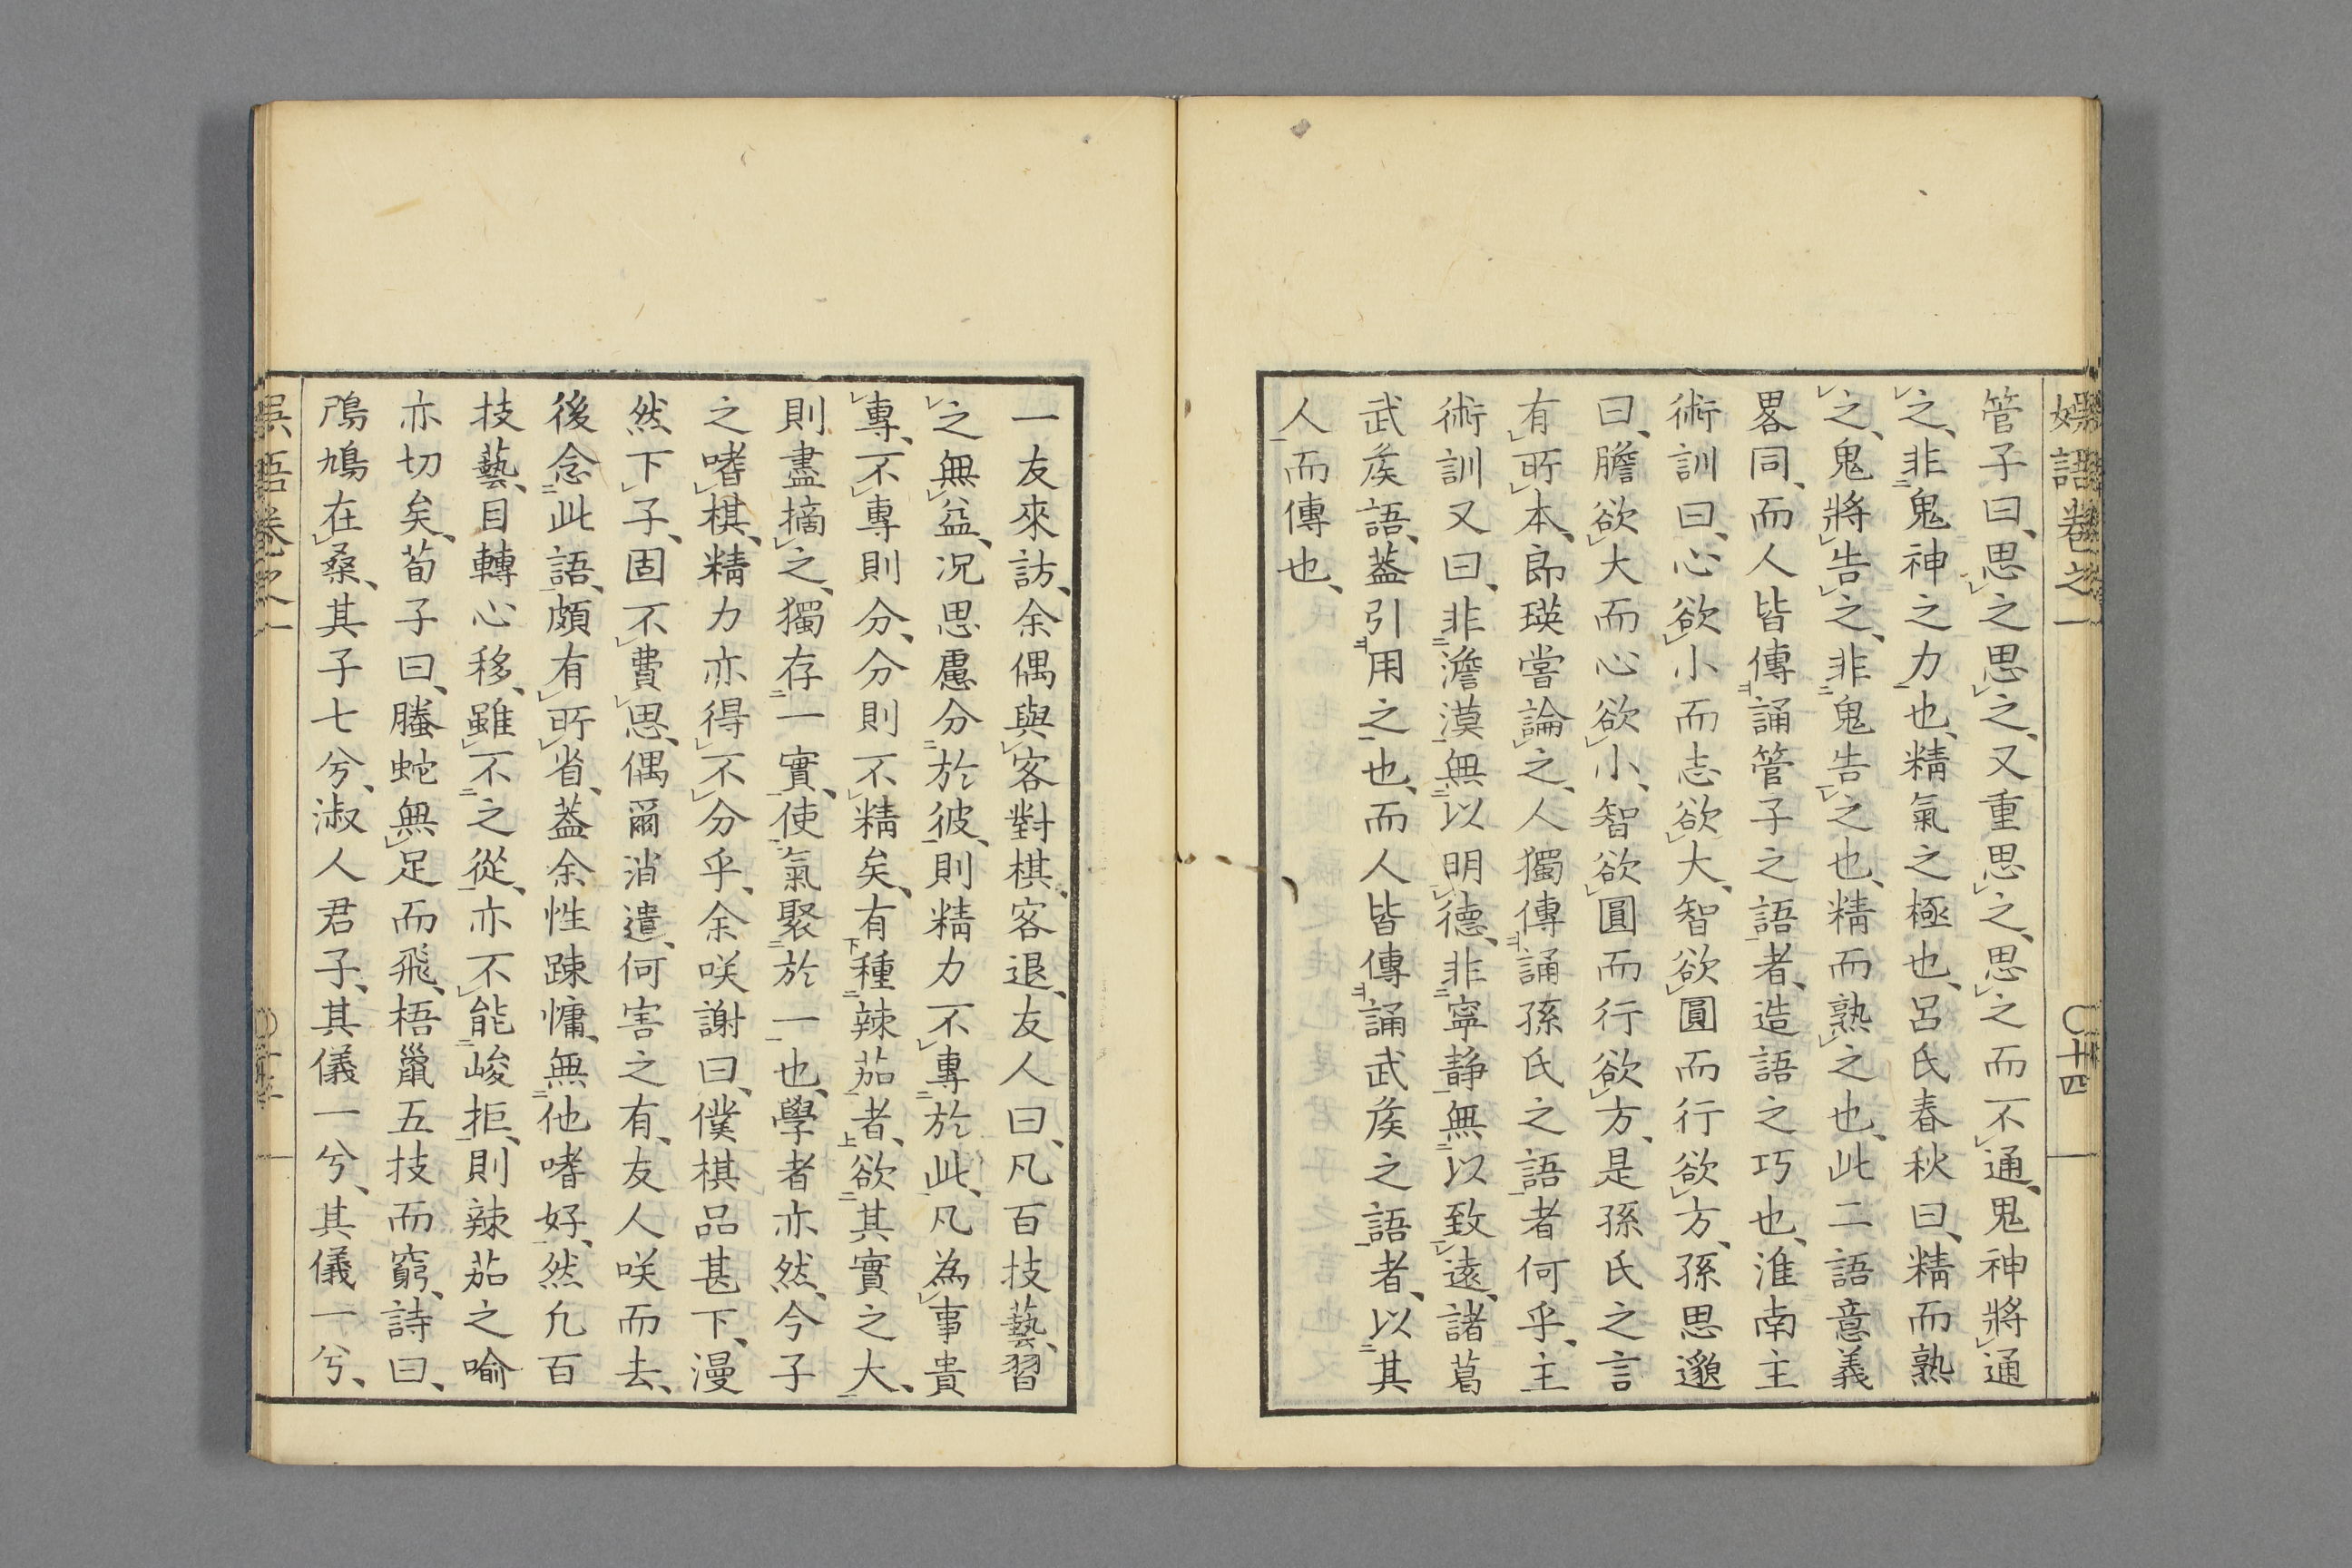 語卷之一 〇十四
管子曰、思之思之、又重思之、思之而不通、鬼神將通
之、非鬼神之力也、精氣之極也、呂氏春秋曰、精而熟
之、鬼將告之、非鬼告之也、精而熟之也、此二語意義
畧同、而人皆傳誦管子之語者、造語之巧也、淮南主
術訓曰、心欲小而志欲大、智欲圓而行欲方、孫思邈
曰、膽欲大而心欲小、智欲圓而行欲方、是孫氏之言
有所本、郎瑛嘗論之、人獨傳誦孫氏之語者何乎、主
術訓又曰、非澹漠無以明德、非寧静無以致遠、諸葛
武矦語、蓋引用之也、而人皆傳誦武矦之語者、以其
人而傳也、
一友來訪、余偶與客對棋、客退、友人曰、凡百技藝、習
之無益、况思慮分於彼、則精力不專於此、凡為事貴
專、不專則分、分則不精矣、有種辣茄者、欲其實之大、
則盡摘之、獨存一實、使氣聚於一也、學者亦然、今子
之嗜棋、精力亦得不分乎、余咲謝曰、僕棋品甚下、漫
然下子、固不費思、偶爾消遣、何害之有、友人咲而去、
後念此語、頗有所省、蓋余性踈慵、無他嗜好、然凢百
技藝、目轉心移、雖不之從、亦不能峻拒、則辣茄之喻
亦切矣、荀子曰、螣蛇無足而飛、梧鼠五技而窮、詩曰、
鳲鳩在桑、其子七兮、淑人君子、其儀一兮、其儀一兮、
語卷之一